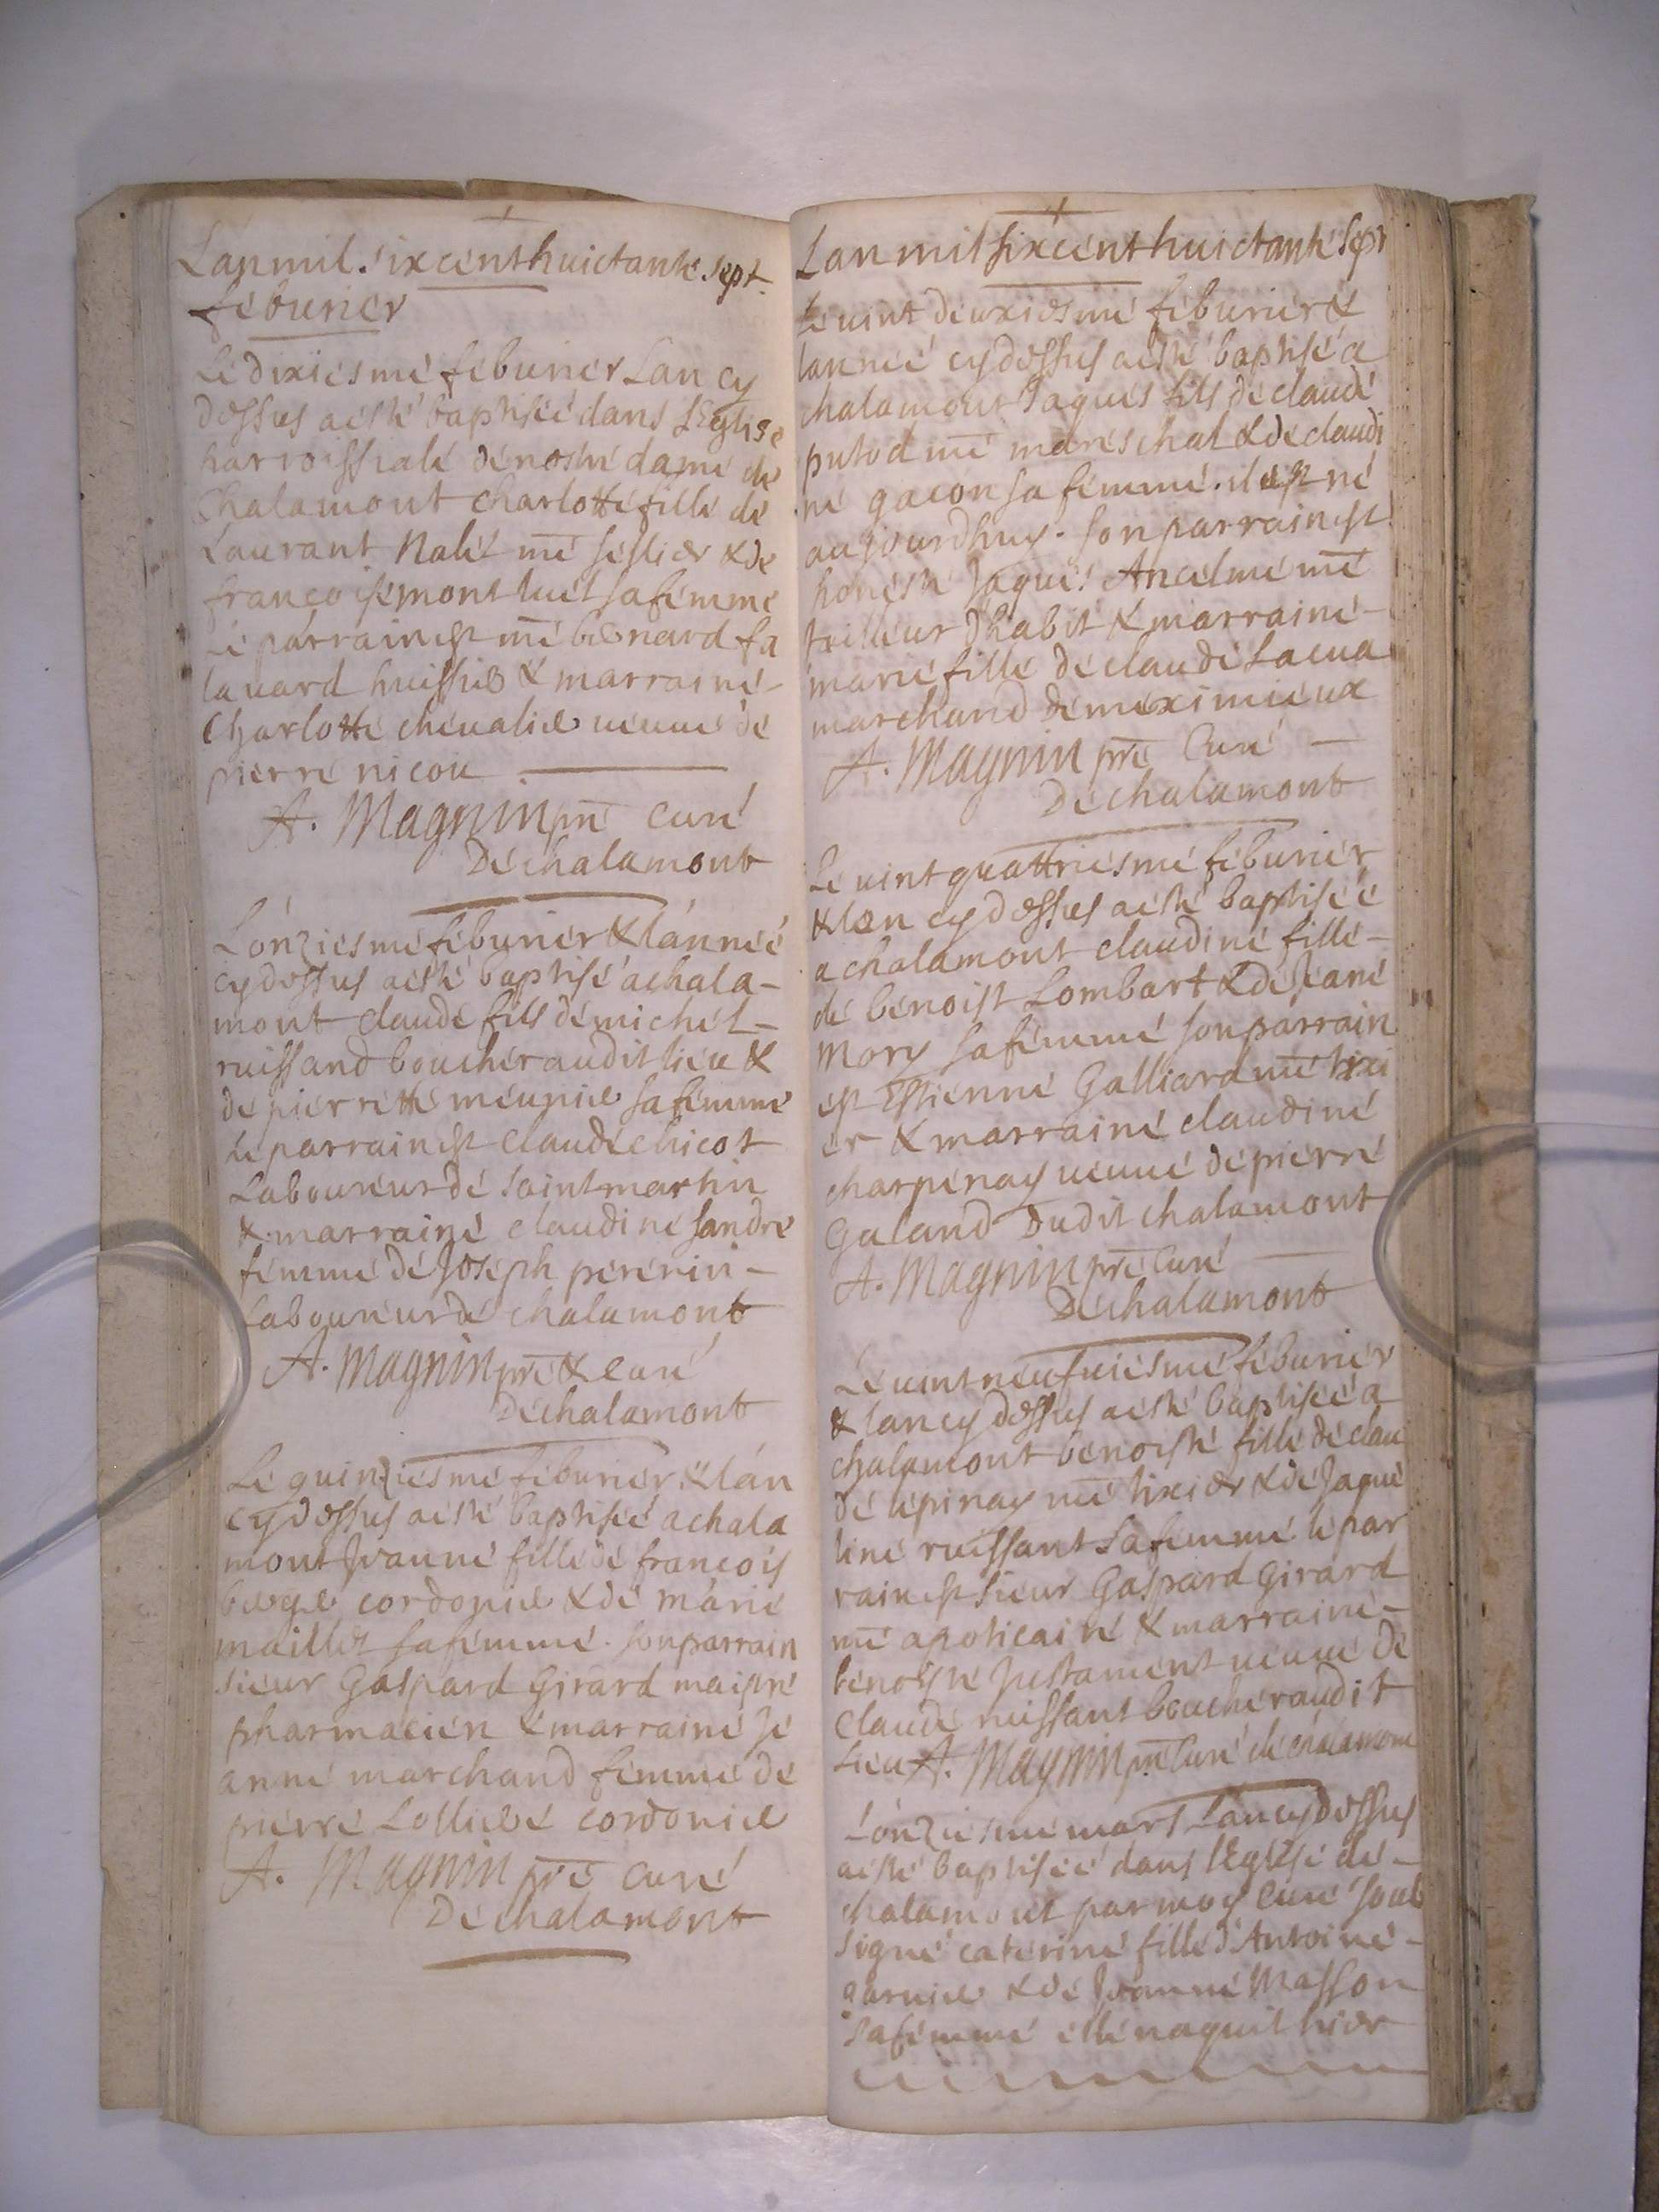 Lan mil. six cent huictante. sept.
feburier
Le dixiesme feburier Lan cy
dessus a esté baptiséé dans L'Eglise
parroissiale de nostre dame de
Chalamont charlotte fille de
Laurant Nalet me sellier & de
francoise montluel sa femme
Le parrain est me bernard fa
lauard huissier & marraine -
Charlotte cheualier ueuue de
pierre nicou
A. Magnin pre curé
De chalamont
L'onziesme feburier & l'année
cy dessus a esté baptisé a chala-
mont claude fils de michel -
ruissand boucher audit lieu &
de pierrette meunier sa femme
Le parrain est claude chicot
Laboureur de saint martin
& marraine claudine sandre
femme de Joseph pererin -
Laboureur de chalamont
A. Magnin pre & curé
De chalamont
Le quinziesme feburier & l'an
cy dessus a esté baptiséé a chala
mont Jeanne fille de francois
berger cordonier & de marie
maillet sa femme. son parrain
sieur Gaspard Girard maistre
pharmacien & marraine Je
anne marchand femme de
pierre cordonier
A. Magnin pre curé
De chalamont
Lan mil six cent huictante sept
Le uint deuxiesme feburier &
lanneé cy dessus a esté baptisé a
chalamont Jaques fils de claude
putod me mareschal & de claudi
ne gacon sa femme. il est né
aujourdhuy. son parrain est
honeste Jaques Ancelme me
tailleur Dhabit & marraine -
marie fille de claude Lacua
marchand de meximieux
A. Magnin pre Curé -
De chalamont
Le uint quattriesme feburier
& lan cy dessus a esté baptiséé
a chalamont claudine fille -
de benoist Lombart & de Jeane
Mory sa femme son parrain
est Estienne Galliard me tixi
er & marraine claudine
charpenay ueuue de pierre
Galand Dudit chalamont
A. Magnin pre Curé
De chalamont
Le uint neufuiesme feburier
& lan cy dessus a esté baptiséé a
chalamont benoiste fille de clau
de lepinay me tixier & de Jaque
line ruissant sa femme le par
rain est sieur Gaspard Girard
me apoticaire & marraine -
benoiste Justament ueuue de
Claude ruissant boucher audit
Lieu A. Magnin pre Curé de chalamont
L'onziesme mars Lan cy dessus
a esté baptiséé dans l'Eglise de -
chalamont par moy Curé soub
signé caterine fille d'Antoine -
garnier & de Jeanne Masson
sa femme elle naquit hier